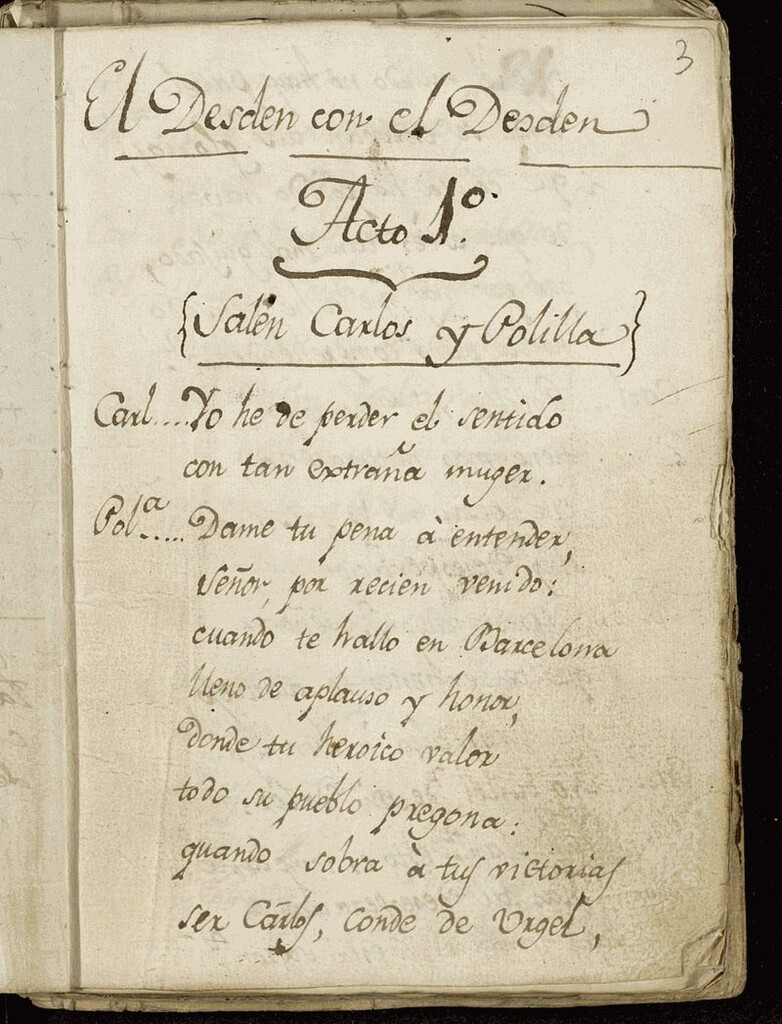 3
El Desden con el Desden
Acto 1.º
{Salen Carlos y Polilla}
Carl....Yo he de perder el sentido
con tan extraña muger.
Pol.ª..... Dame tu pena à entender,
señor, por recien venido:
cuando te hallo en Barcelona
lleno de aplauso y honor,
donde tu heroico valor
todo su pueblo pregona:
quando sobra à tus victorias
ser Cárlos, Conde de Urgel,